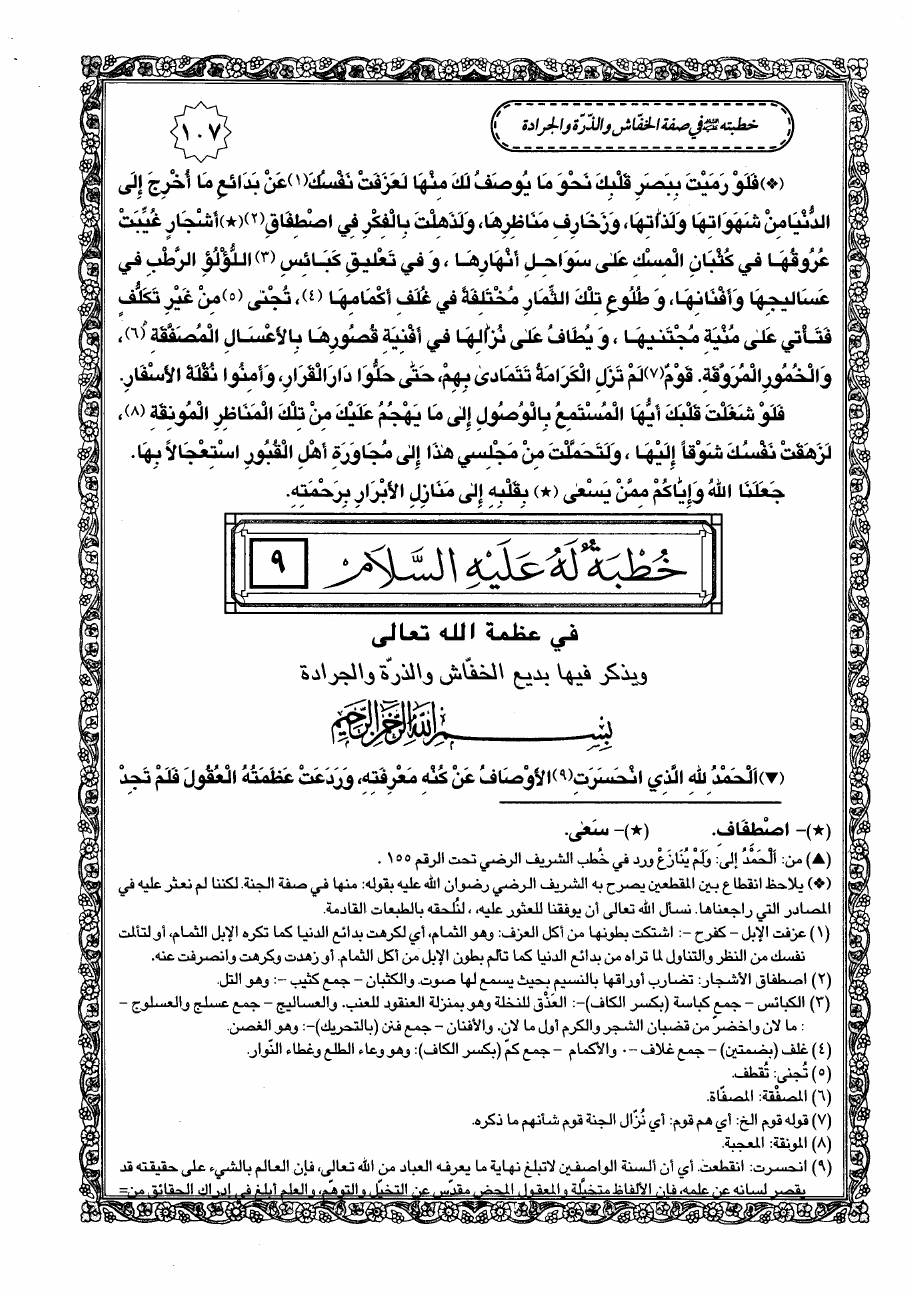 خطبته ﷺ في صفة الخفّاش والذّرّة والجرادة
١٠٧
(❖) فَلَوْ رَمَيْتَ بِبَصَرِ قَلْبِكَ نَحْوَ مَا يُوصَفُ لَكَ مِنْهَا لَعَزَفَتْ نَفْسُكَ(١) عَنْ بَدَائِعِ مَا أُخْرِجَ إِلَى
الدُّنْيَا مِنْ شَهَوَاتِهَا وَلَذَّاتِهَا، وَزَخَارِفِ مَنَاظِرِهَا، وَلَذَهِلَتْ بِالْفِكْرِ فِي اصْطِفَاقِ(٢)(★) أَشْجَارٍ غُيِّبَتْ
عُرُوقُهَا في كُثْبَانِ الْمِسْكِ عَلىٰ سَوَاحِلِ أَنْهَارِهَا، وَفي تَعْليقِ كَبَائِسِ(٣) اللُّؤْلُؤِ الرَّطْبِ في
عَسَاليجِهَا وَأَفْنَانِهَا، وَطُلُوعِ تِلْكَ الثِّمَارِ مُخْتَلِفَةً في غُلَفِ أَكْمَامِهَا (٤)، تُجْنىٰ (٥) مِنْ غَيْرِ تَكَلُّفٍ
فَتَأْتي عَلىٰ مُنْيَةِ مُجْتَنيهَا، وَيُطَافُ عَلىٰ نُزَّالِهَا في أَفْنِيَةِ قُصُورِهَا بِالأَعْسَالِ الْمُصَفَّقَةِ (٦)،
وَالْخُمُورِ الْمُرَوَّقَةِ. قَوْمٌ(٧) لَمْ تَزَلِ الْكَرَامَةُ تَتَمَادىٰ بِهِمْ، حَتّىٰ حَلُّوا دَارَ الْقَرَارِ، وَأَمِنُوا نُقْلَةَ الأَسْفَارِ.
فَلَوْ شَغَلْتَ قَلْبَكَ أَيُّهَا الْمُسْتَمِعُ بِالْوُصُولِ إِلىٰ مَا يَهْجُمُ عَلَيْكَ مِنْ تِلْكَ الْمَنَاظِرِ الْمُونِقَةِ (٨)،
لَزَهَقَتْ نَفْسُكَ شَوْقاً إِلَيْهَا، وَلَتَحَمَّلْتَ مِنْ مَجْلِسي هٰذَا إِلىٰ مُجَاوَرَةِ أَهْلِ الْقُبُورِ اسْتِعْجَالاً بِهَا.
جَعَلَنَا اللهُ وَإِيَّاكُمْ مِمَّنْ يَسْعىٰ (★) بِقَلْبِهِ إِلىٰ مَنَازِلِ الأَبْرَارِ بِرَحْمَتِهِ.
خُطْبَةٌ لَهُ عَلَيْهِ السَّلَامُ
٩
في عظمة الله تعالى
ويذكر فيها بديع الخفّاش والذرّة والجرادة
بِسْمِ اللهِ الرَّحْمٰنِ الرَّحِيمِ
(▼) اَلْحَمْدُ لِلهِ الَّذِي انْحَسَرَتِ(٩) الأَوْصَافُ عَنْ كُنْهِ مَعْرِفَتِهِ، وَرَدَعَتْ عَظَمَتُهُ الْعُقُولَ فَلَمْ تَجِدْ
(★)- اصْطِفَافِ. (★)- سَعىٰ.
(▲) من: اَلْحَمْدُ إلى: وَلَمْ يُنَازَعْ ورد في خُطب الشريف الرضي تحت الرقم ١٥٥ .
(❖) يلاحظ انقطاع بين المقطعين يصرح به الشريف الرضي رضوان الله عليه بقوله: منها في صفة الجنة. لكننا لم نعثر عليه في
المصادر التي راجعناها. نسأل الله تعالى أن يوفقنا للعثور عليه، ، لنُلحقه بالطبعات القادمة.
(١) عزفت الإبل – كفرح –: اشتكت بطونها من أكل العزف: وهو الثمام، أي لكرهت بدائع الدنيا كما تكره الإبل الثمام، أو لتألمت
نفسك من النظر والتناول لما تراه من بدائع الدنيا كما تألم بطون الإبل من أكل الثمام. أو زهدت وكرهت وانصرفت عنه.
(٢) اصطفاق الأشجار: تضارب أوراقها بالنسيم بحيث يسمع لها صوت. والكثبان – جمع كثيب –: وهو التل.
(٣) الكبائس – جمع كباسة (بكسر الكاف)–: العَذْق للنخلة وهو بمنزلة العنقود للعنب. والعساليج – جمع عسلج والعسلوج –
: ما لان واخضرّ من قضبان الشجر والكرم أول ما لان. والأفنان – جمع فنن (بالتحريك)–: وهو الغصن.
(٤) غلف (بضمتين) – جمع غلاف –٠ والأكمام – جمع كمّ (بكسر الكاف): وهو وعاء الطلع وغطاء النّوار.
(٥) تُجنى: تُقطف.
(٦) المصفّقة: المصفّاة.
(٧) قوله قوم الخ: أي هم قوم: أي نُزّال الجنة قوم شأنهم ما ذكره.
(٨) المونقة: المعجبة.
(٩) انحسرت: انقطعت. أي أن ألسنة الواصفين لاتبلغ نهاية ما يعرفه العباد من الله تعالى، فإن العالم بالشيء على حقيقته قد
يقصر لسانه عن علمه، فإن الألفاظ متخيلة والمعقول المحض مقدّس عن التخيّل والتوهّم، والعلم أبلغ في إدراك الحقائق من=